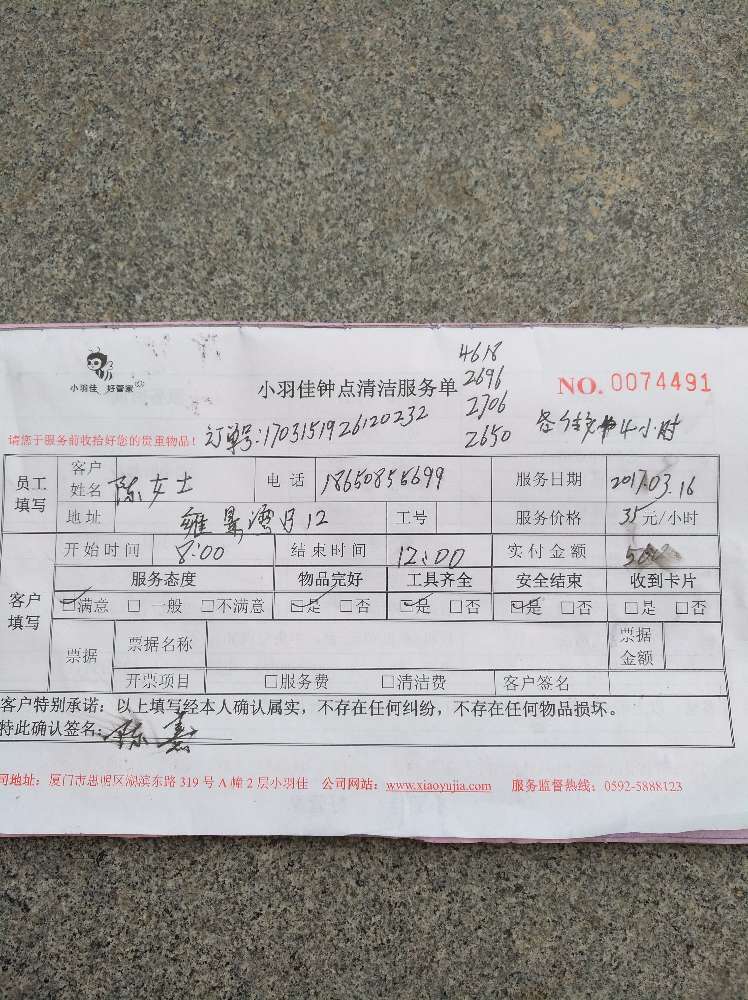 小羽佳 好管家
小羽佳钟点清洁服务单
NO. 0074491
4618
2696
2706
2650
4小时
请您于服务前收拾好您的贵重物品!
订单号:1703151926120232
员工填写
客户姓名 陈女士 电话 18650855699 服务日期 2017.03.16
地址 12 工号 服务价格 35元/小时
客户填写
开始时间 8:00 结束时间 12:00 实付金额
服务态度 物品完好 工具齐全 安全结束 收到卡片
☑满意 □一般 □不满意 ☑是 □否 ☑是 □否 ☑是 □否 □是 □否
票据 票据名称 票据金额
开票项目 □服务费 □清洁费 客户签名
客户特别承诺:以上填写经本人确认属实,不存在任何纠纷,不存在任何物品损坏。
特此确认签名:
司地址:厦门市思明区湖滨东路 319 号 A 幢 2 层小羽佳 公司网站:www.xiaoyujia.com 服务监督热线:0592-5888123